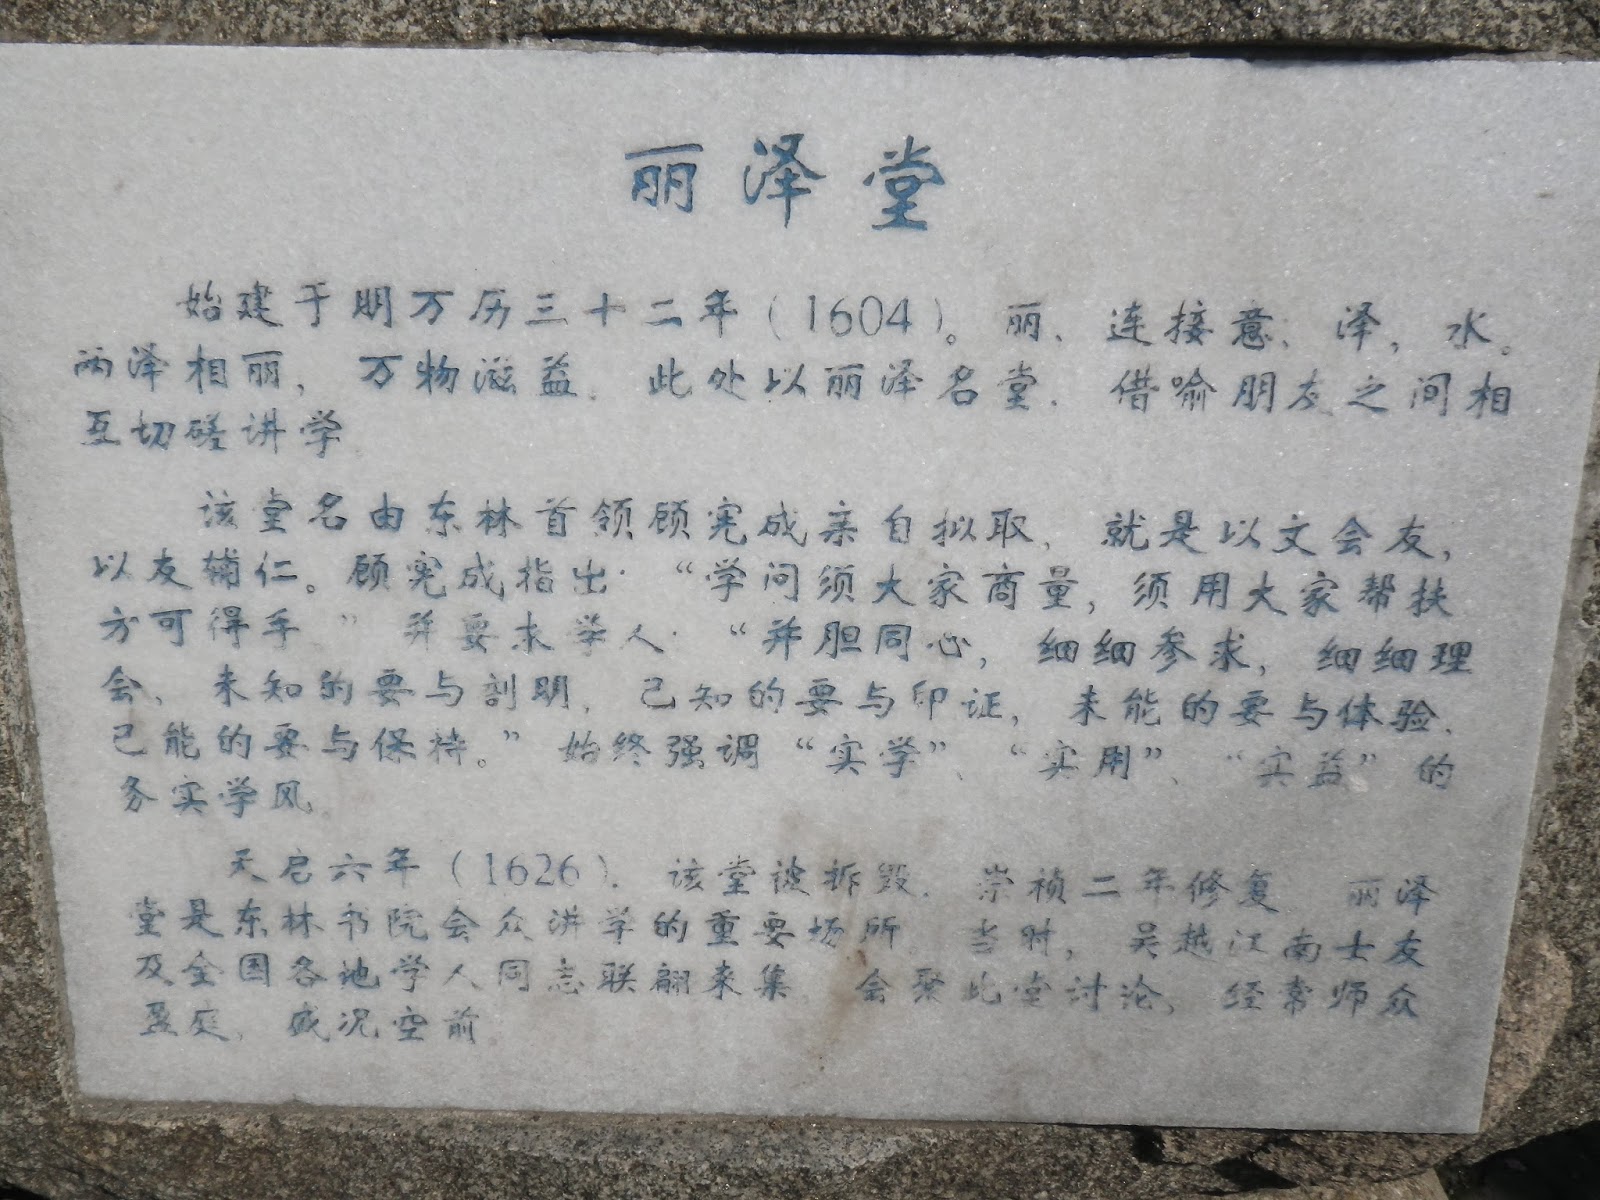 丽泽堂
始建于明万历三十二年（1604）。丽、连接意；泽，水。
两泽相丽，万物滋益。此处以丽泽名堂．借喻朋友之间相
互切磋讲学
该堂名由东林首领顾宪成亲自拟取，就是以文会友，
以友辅仁。顾宪成指出：“学问须大家商量，须用大家帮扶
方可得手。”并要求学人：“并胆同心，细细参求，细细理
会，未知的要与剖明，已知的要与印证，未能的要与体验．
已能的要与保持。”始终强调“实学”、“实用”、“实益”的
务实学风
天启六年（1626）．该堂被拆毁．崇祯二年修复 丽泽
堂是东林书院会众讲学的重要场所。当时，吴越江南士友
及全国各地学人同志联翩来集 会聚此堂讨论，经常师众
盈庭，盛况空前